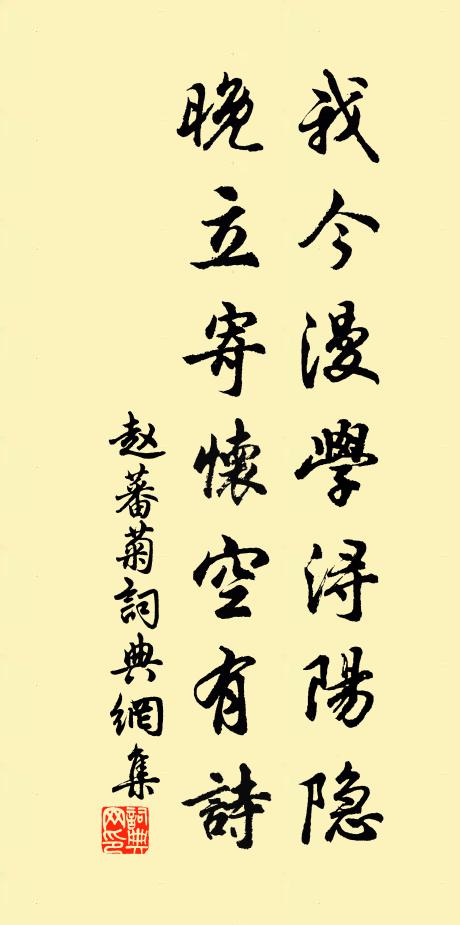 我今漫學浔陽隐
晚立寄懷空有詩
赵蕃菊詞典網集
詞典网印